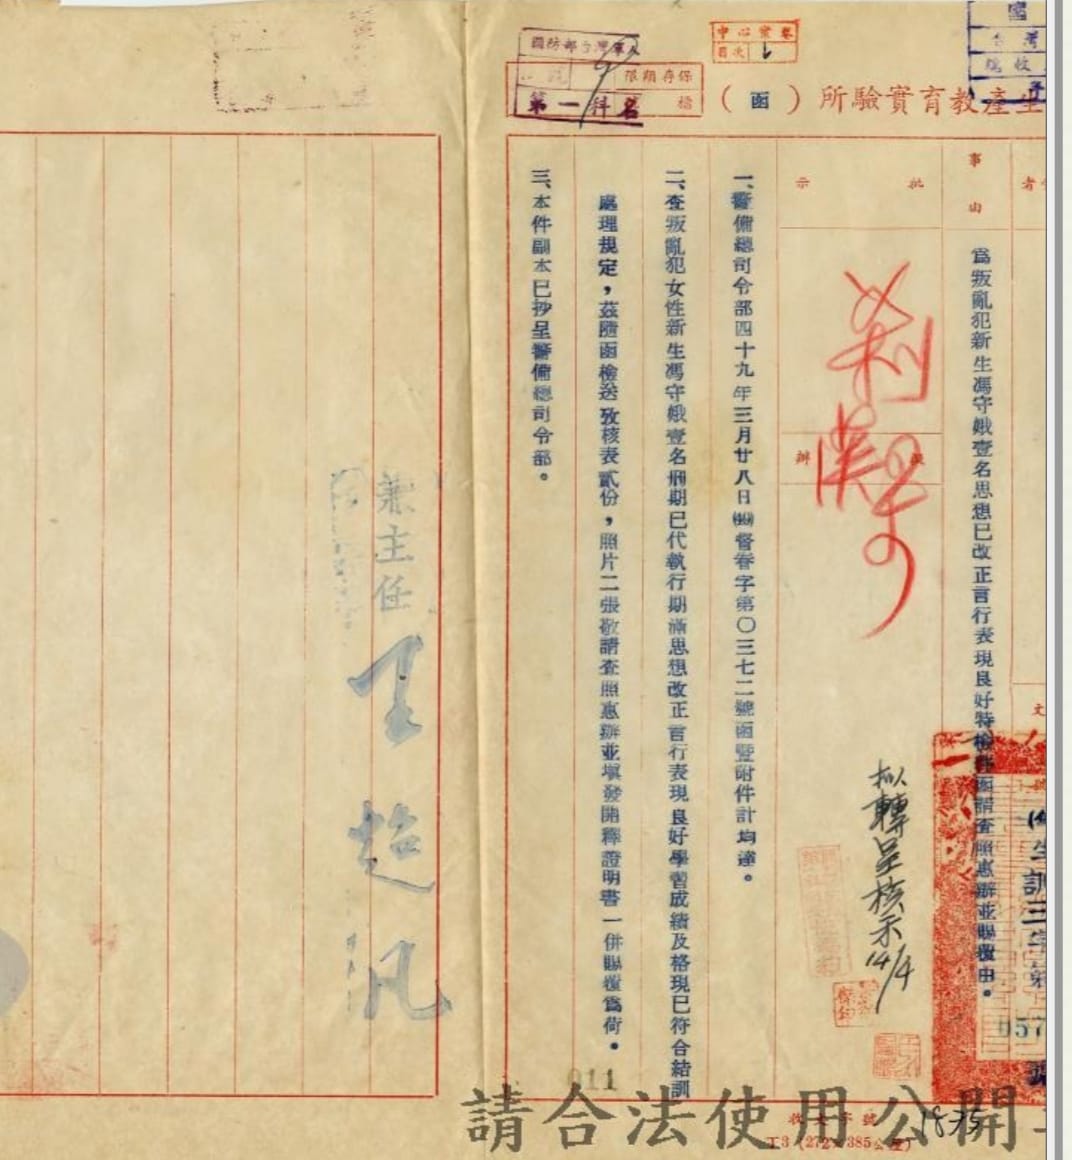 生產教育實驗所（函）
中心案卷
目次
國防部台灣軍人
保存期限
檔
第一科
事由
為叛亂犯新生馮守娥壹名思想已改正言行表現良好特檢件函請查照惠辦並賜覆由。
批示
擬辦
擬轉呈核示14/4
一、警備總司令部四十九年三月廿八日㈣督眷字第〇三七二號函暨附件計均達。
二、查叛亂犯女性新生馮守娥壹名刑期已代執行期滿思想改正言行表現良好學習成績及格現已符合結訓
處理規定，茲隨函檢送攷核表貳份，照片二張敬請查照惠辦並填發開釋證明書一併賜覆為荷。
三、本件副本已抄呈警備總司令部。
兼主任
王超凡
011
收文字號
1835
工3（272×385公厘）
請合法使用公開